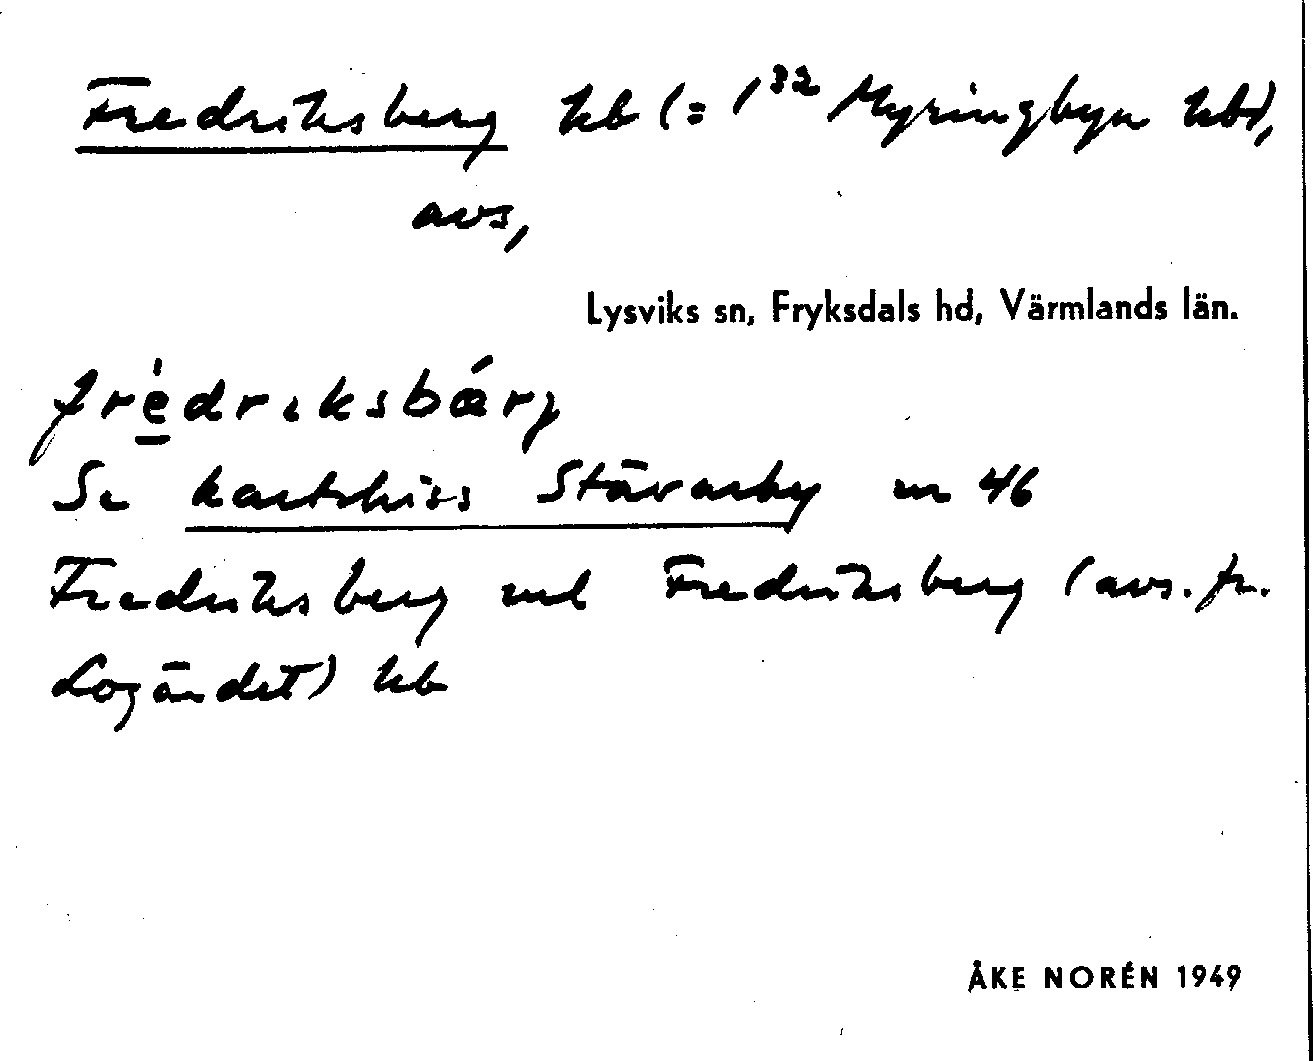 Fredriksberg hb (= 1³² Myringbyn hbt),
avs,
Lysviks sn, Fryksdals hd, Värmlands län.
fre̱driksbærj
Se kartskiss Stävarby nr 46
Fredriksberg vid Fredriksberg (avs. fr.
Logändet) hb
ÅKE NORÉN 1949